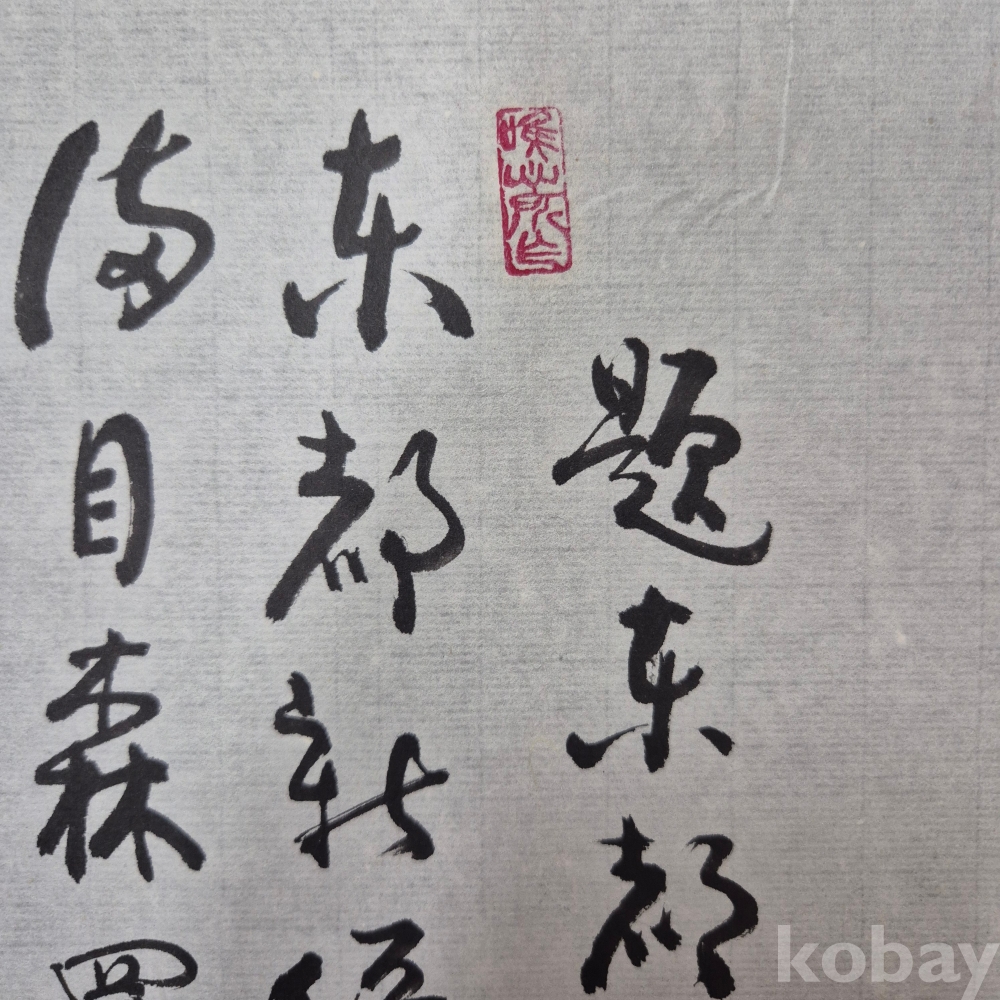 題東都
東都新
滿目森
kobay